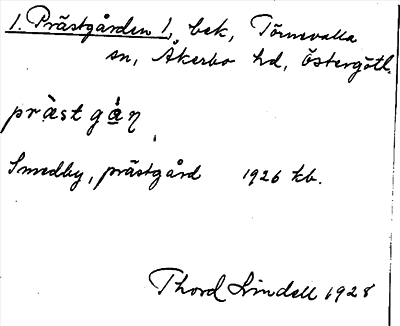 1. Prästgården 1, bek, Törnevalla
sn, Åkerbo hd, Östergötl.
prà̀st gá̀ɳ
Smedby, prästgård 1926 kb.
Thord Lindell 1928